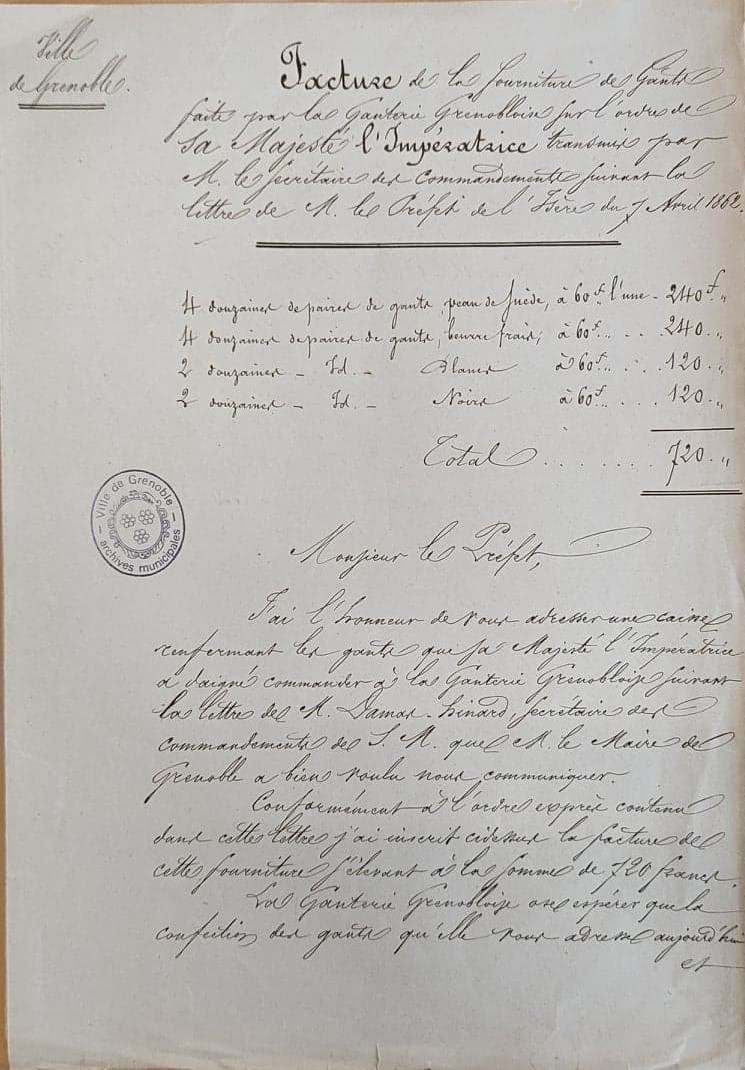 Ville
de Grenoble.
Facture de la fourniture de Gants
faite par la Ganterie Grenobloise sur l'ordre de
Sa Majesté l'Impératrice transmis par
M. le Secrétaire des Commandements suivant la
lettre de M. le Préfet de l'Isère du 7 Avril 1862.
4 douzaines de paires de gants, peau de suède, à 60f. l'une - 240f. "
4 douzaines de paires de gants, beurre frais, à 60f... . . 240. . "
2 douzaines - Id. - Blancs à 60f... . . . 120. . "
2 douzaines - Id. - Noirs à 60f... . . . 120. . "
Total . . . . . . . 720. . "
Ville de Grenoble
archives municipales
Monsieur le Préfet,
J'ai l'honneur de vous adresser une caisse
renfermant les gants que Sa Majesté l'Impératrice
a daigné commander à la Ganterie Grenobloise suivant
la lettre de M. Damas-hinard, secrétaire des
commandements de S. M. que M. le Maire de
Grenoble a bien voulu nous communiquer.
Conformément à l'ordre exprès contenu
dans cette lettre j'ai inscrit cidessus la facture de
cette fourniture s'élevant à la somme de 720 francs.
La Ganterie Grenobloise ose espérer que la
confection des gants qu'elle vous adresse aujourd'hui
et